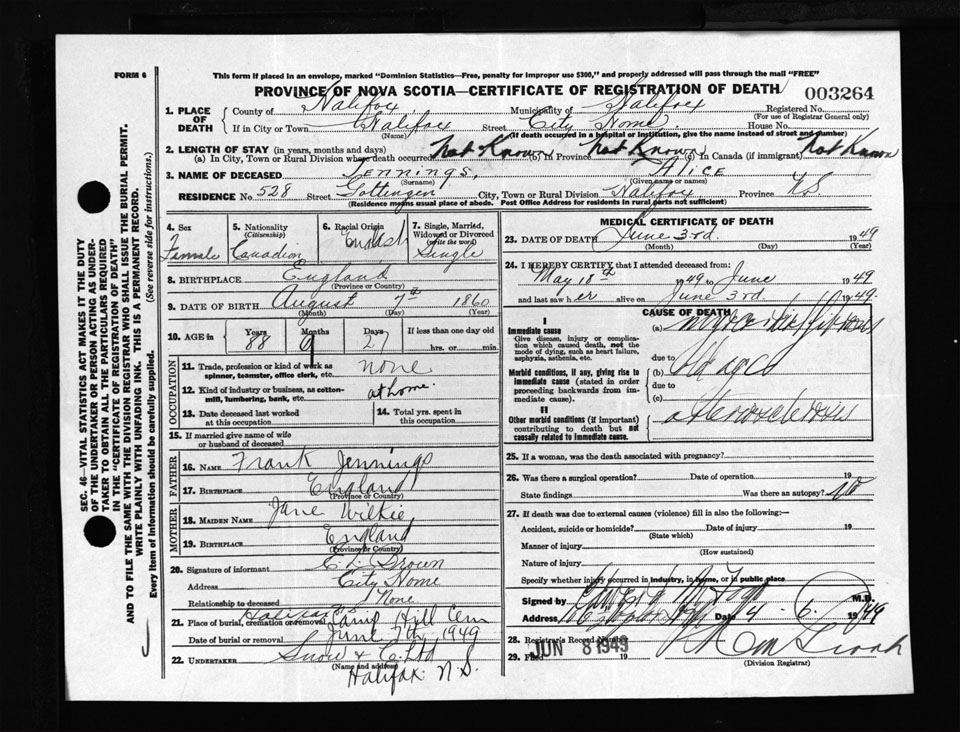 FORM 6
This form if placed in an envelope, marked "Dominion Statistics—Free, penalty for improper use $300," and properly addressed will pass through the mail "FREE"
PROVINCE OF NOVA SCOTIA—CERTIFICATE OF REGISTRATION OF DEATH
003264
1. PLACE OF DEATH
County of Halifax Municipality of Halifax Registered No.
(For use of Registrar General only)
If in City or Town Halifax Street City Home House No.
(Name) (If death occurred in a hospital or institution, give the name instead of street and number)
2. LENGTH OF STAY (in years, months and days)
(a) In City, Town or Rural Division where death occurred Not Known (b) In Province Not Known (c) In Canada (if immigrant) Not Known
3. NAME OF DECEASED Jennings, Alice
(Surname) (Given name or names)
RESIDENCE No. 528 Street Gottingen City, Town or Rural Division Halifax Province N.S
(Residence means usual place of abode. Post Office Address for residents in rural parts not sufficient)
4. Sex
Female
5. Nationality
(Citizenship)
Canadian
6. Racial Origin
English
7. Single, Married, Widowed or Divorced
(write the word)
Single
8. BIRTHPLACE England
(Province or Country)
9. DATE OF BIRTH August 7th 1860
(Month) (Day) (Year)
10. AGE in
Years Months Days If less than one day old
88 9 27 hrs. or min.
OCCUPATION
11. Trade, profession or kind of work as spinner, teamster, office clerk, etc. none
12. Kind of industry or business, as cotton-mill, lumbering, bank, etc. at home.
13. Date deceased last worked at this occupation
14. Total yrs. spent in this occupation
15. If married give name of wife or husband of deceased
FATHER
16. NAME Frank Jennings
17. BIRTHPLACE England
(Province or Country)
MOTHER
18. MAIDEN NAME Jane Wilkie
19. BIRTHPLACE England
(Province or Country)
20. Signature of informant E. L. Brown
Address City Home
Relationship to deceased None
21. Place of burial, cremation or removal Camp Hill Cem
Date of burial or removal June 1949
22. UNDERTAKER Snow & Co Ltd
(Name and address)
Halifax N.S.
MEDICAL CERTIFICATE OF DEATH
23. DATE OF DEATH June 3rd. 1949
(Month) (Day) (Year)
24. I HEREBY CERTIFY that I attended deceased from:
May 18th 1949 to June 1949
and last saw her alive on June 3rd 1949.
CAUSE OF DEATH
I
Immediate cause
Give disease, injury or complication which caused death, not the mode of dying, such as heart failure, asphyxia, asthenia, etc.
(a)
due to
Morbid conditions, if any, giving rise to immediate cause (stated in order proceeding backwards from immediate cause).
(b) Old age
due to
(c)
II
Other morbid conditions (if important) contributing to death but not causally related to immediate cause.
25. If a woman, was the death associated with pregnancy?
26. Was there a surgical operation? Date of operation 19
State findings Was there an autopsy? no
27. If death was due to external causes (violence) fill in also the following:—
Accident, suicide or homicide? Date of injury 19
(State which)
Manner of injury
(How sustained)
Nature of injury
Specify whether injury occurred in industry, in home, or in public place
Signed by M.D.
Address Date 1949
28. Registrar's Record Number
29. Filed JUN 8 1949 19
(Division Registrar)
SEC. 46—VITAL STATISTICS ACT MAKES IT THE DUTY
OF THE UNDERTAKER OR PERSON ACTING AS UNDERTAKER TO OBTAIN ALL THE PARTICULARS REQUIRED
IN THE "CERTIFICATE OF REGISTRATION OF DEATH"
AND TO FILE THE SAME WITH THE DIVISION REGISTRAR WHO SHALL ISSUE THE BURIAL PERMIT.
WRITE PLAINLY WITH UNFADING INK. THIS IS A PERMANENT RECORD.
Every item of information should be carefully supplied. (See reverse side for instructions.)